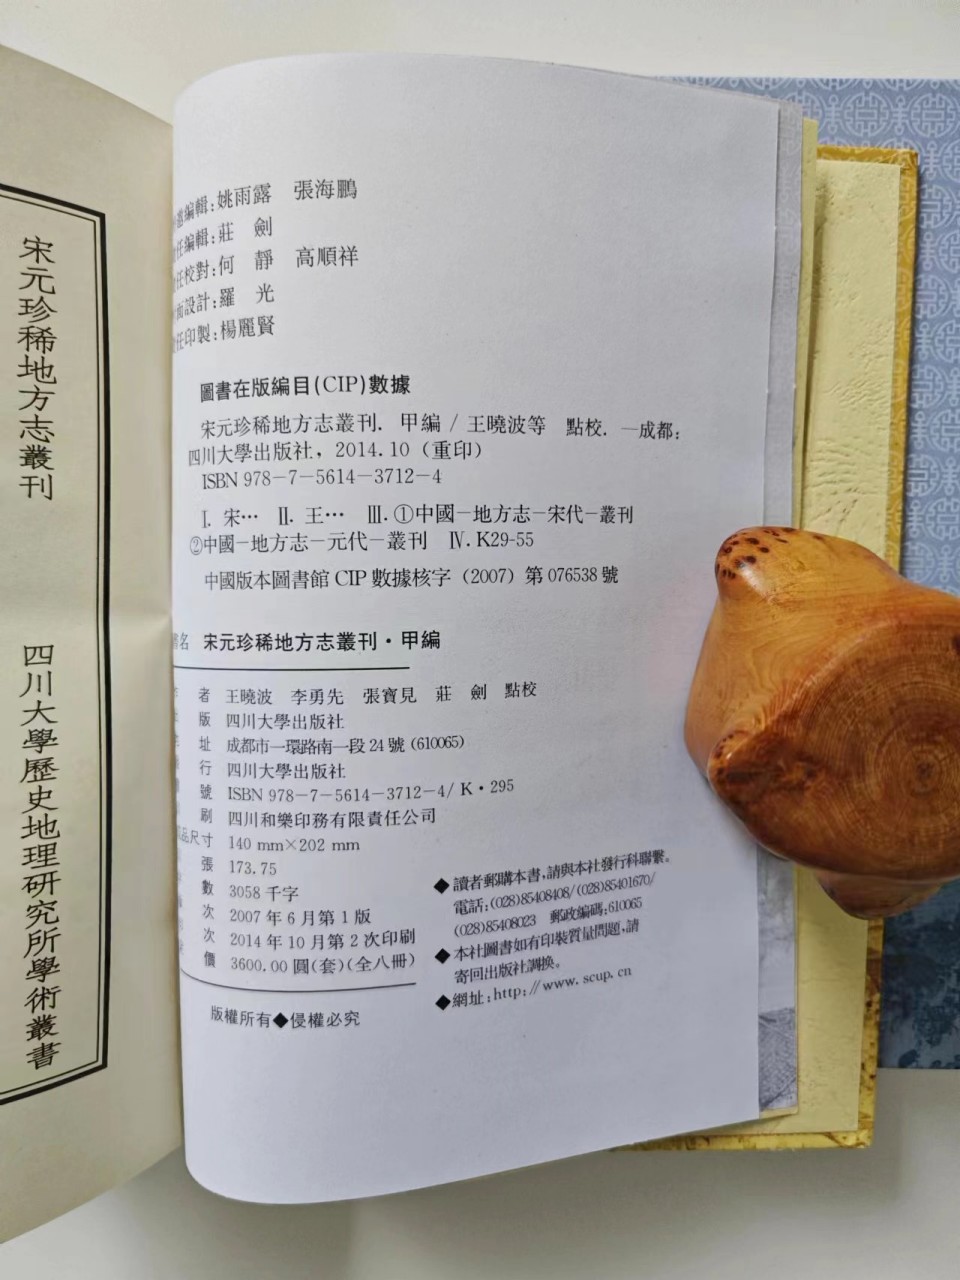 宋元珍稀地方志叢刊
四川大學歷史地理研究所學術叢書
編輯:姚雨露 張海鵬
任編輯:莊 劍
任校對:何 靜 高順祥
面設計:羅 光
任印製:楊麗賢
圖書在版編目(CIP)數據
宋元珍稀地方志叢刊. 甲編 / 王曉波等 點校. —成都:
四川大學出版社, 2014.10 (重印)
ISBN 978-7-5614-3712-4
Ⅰ. 宋… Ⅱ. 王… Ⅲ. ①中國-地方志-宋代-叢刊
②中國-地方志-元代-叢刊 Ⅳ. K29-55
中國版本圖書館 CIP 數據核字 (2007) 第 076538 號
書名 宋元珍稀地方志叢刊·甲編
者 王曉波 李勇先 張寶見 莊 劍 點校
版 四川大學出版社
址 成都市一環路南一段 24 號 (610065)
行 四川大學出版社
號 ISBN 978-7-5614-3712-4/ K·295
刷 四川和樂印務有限責任公司
品尺寸 140 mm×202 mm
張 173.75
數 3058 千字
次 2007 年 6 月第 1 版
次 2014 年 10 月第 2 次印刷
價 3600.00 圓(套)(全八冊)
版權所有◆侵權必究
◆讀者郵購本書,請與本社發行科聯繫。
電話:(028)85408408/(028)85401670/
(028)85408023 郵政編碼:610065
◆本社圖書如有印裝質量問題,請
寄回出版社調換。
◆網址:http://www.scup.cn